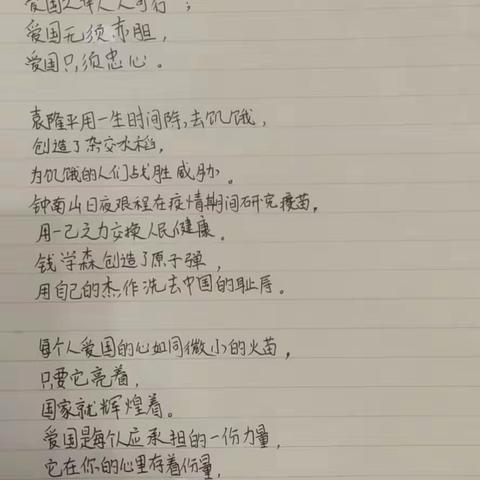 爱国之译人人可行；
爱国无须赤胆，
爱国只须忠心。
袁隆平用一生时间除去饥饿，
创造了杂交水稻，
为饥饿的人们战胜威胁。
钟南山日夜艰程在疫情期间研究疫苗，
用一己之力交换人民健康。
钱学森创造了原子弹，
用自己的杰作洗去中国的耻辱。
每个人爱国的心如同微小的火苗，
只要它亮着，
国家就辉煌着。
爱国是每个人应承担的一份力量，
它在你的心里存着份量，